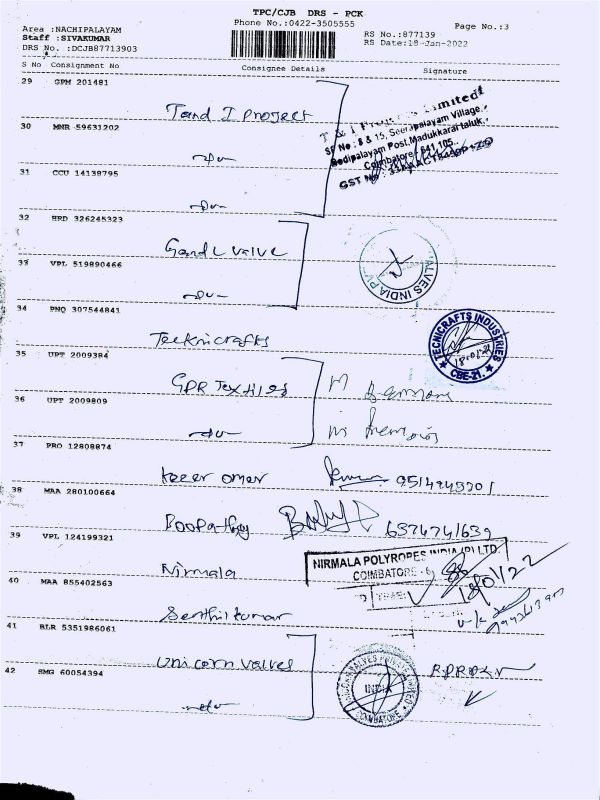 TPC/CJB DRS - PCK
Phone No.:0422-3505555
Page No.:3
Area :NACHIPALAYAM
Staff :SIVAKUMAR
DRS No. :DCJB87713903
RS No.:877139
RS Date:18-Jan-2022
S No Consignment No Consignee Details Signature
29 GPM 201481
T and I Project
T & I Projects Limited
SF No : 8 & 15, Seerapalayam Village,
Bodipalayam Post, Madukkarai taluk,
Coimbatore - 641 105.
GST No :
30 MNR 59631202
31 CCU 14138795
32 HRD 326245323
G and L valve
VALVES INDIA PVT
33 VPL 519890466
34 PNQ 307544841
Tecknicrafts
TECNICRAFTS INDUSTRIES
CBE-21.
35 UPT 2009384
GPR Textiles
36 UPT 2009809
37 PRO 12808874
38 MAA 280100664
Boopathy
39 VPL 124199321
Nirmala
NIRMALA POLYROPES INDIA (P) LTD.
COIMBATORE -
TIME:
18/01/22
40 MAA 855402563
Senthil kumar
41 BLR 5351986061
Unicorn valves
INDIA
COIMBATORE
42 SMG 60054394